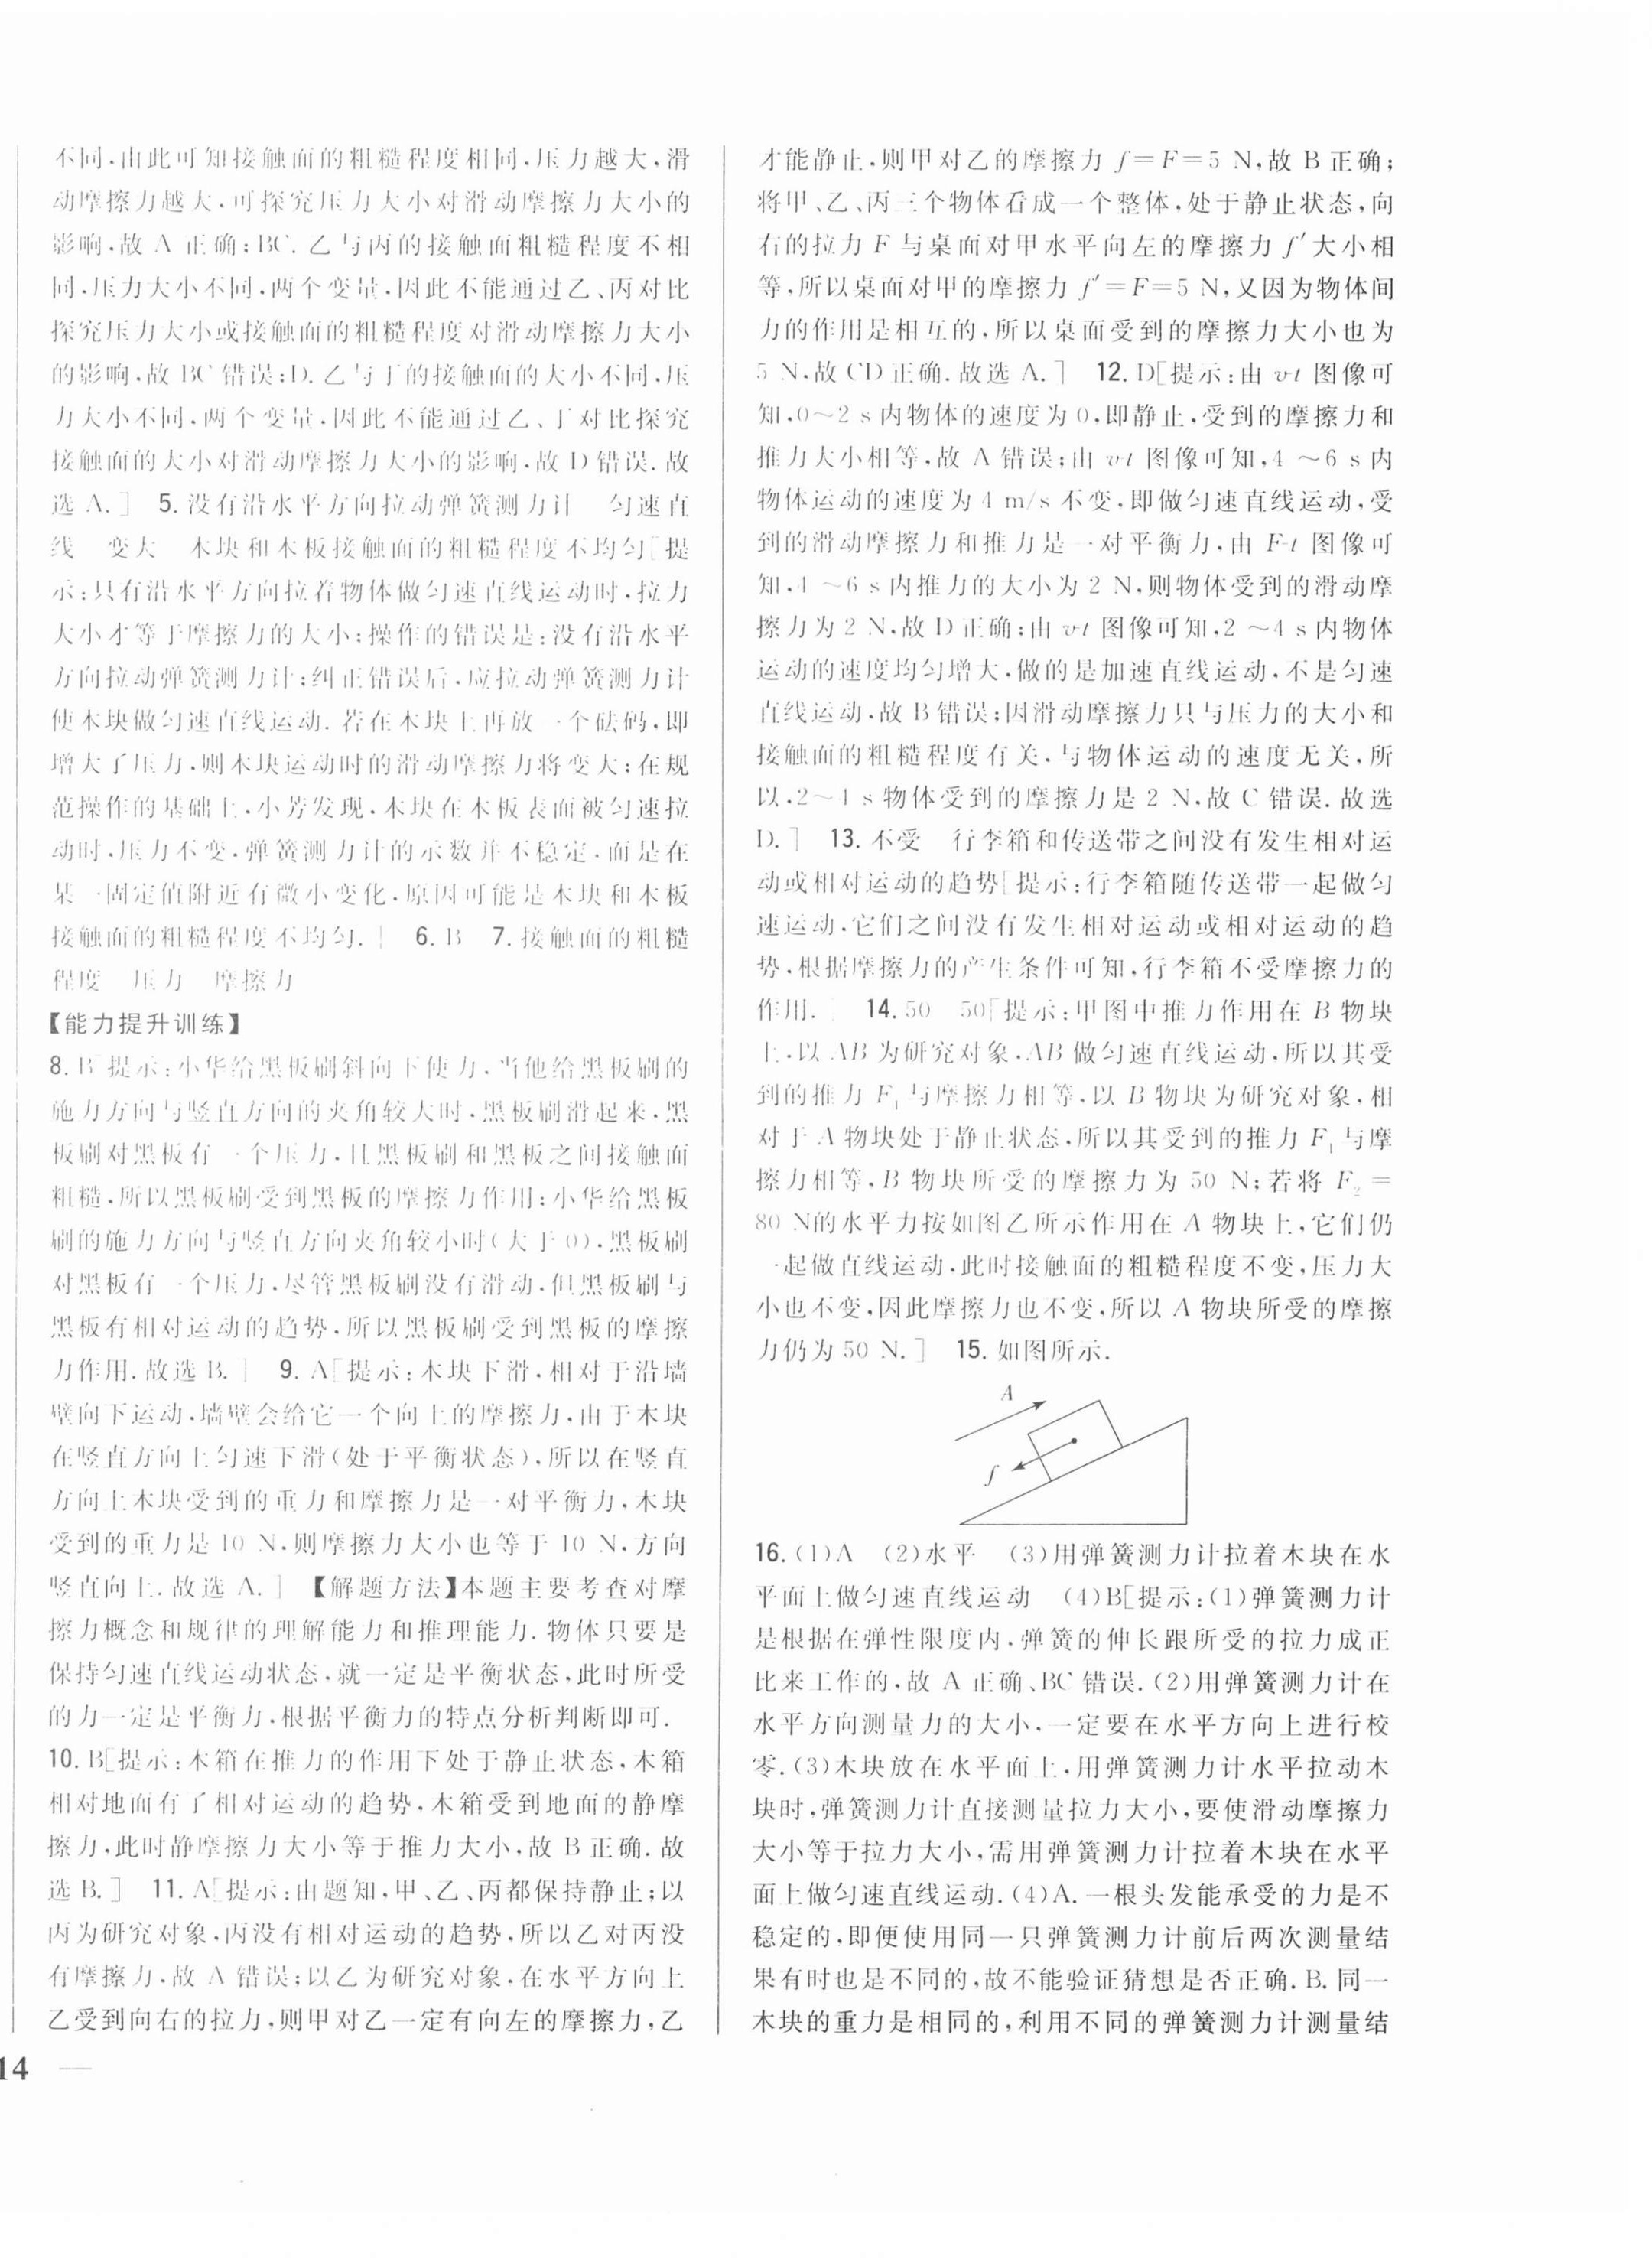 不同,由此可知接触面的粗糙程度相同,压力越大,滑
动摩擦力越大,可探究压力大小对滑动摩擦力大小的
影响,故 A 正确;BC. 乙与丙的接触面粗糙程度不相
同,压力大小不同,两个变量,因此不能通过乙、丙对比
探究压力大小或接触面的粗糙程度对滑动摩擦力大小
的影响,故 BC 错误;D. 乙与丁的接触面的大小不同,压
力大小不同,两个变量,因此不能通过乙、丁对比探究
接触面的大小对滑动摩擦力大小的影响,故 D 错误. 故
选 A.] 5. 没有沿水平方向拉动弹簧测力计 匀速直
线 变大 木块和木板接触面的粗糙程度不均匀[提
示:只有沿水平方向拉着物体做匀速直线运动时,拉力
大小才等于摩擦力的大小;操作的错误是:没有沿水平
方向拉动弹簧测力计;纠正错误后,应拉动弹簧测力计
使木块做匀速直线运动. 若在木块上再放一个砝码,即
增大了压力,则木块运动时的滑动摩擦力将变大;在规
范操作的基础上,小芳发现,木块在木板表面被匀速拉
动时,压力不变,弹簧测力计的示数并不稳定,而是在
某一固定值附近有微小变化,原因可能是木块和木板
接触面的粗糙程度不均匀.] 6. B 7. 接触面的粗糙
程度 压力 摩擦力
【能力提升训练】
8. B[提示:小华给黑板刷斜向下使力,当他给黑板刷的
施力方向与竖直方向的夹角较大时,黑板刷滑起来,黑
板刷对黑板有一个压力,且黑板刷和黑板之间接触面
粗糙,所以黑板刷受到黑板的摩擦力作用;小华给黑板
刷的施力方向与竖直方向夹角较小时(大于0),黑板刷
对黑板有一个压力,尽管黑板刷没有滑动,但黑板刷与
黑板有相对运动的趋势,所以黑板刷受到黑板的摩擦
力作用. 故选 B.] 9. A[提示:木块下滑,相对于沿墙
壁向下运动,墙壁会给它一个向上的摩擦力,由于木块
在竖直方向上匀速下滑(处于平衡状态),所以在竖直
方向上木块受到的重力和摩擦力是一对平衡力,木块
受到的重力是 10 N,则摩擦力大小也等于 10 N,方向
竖直向上. 故选 A.] 【解题方法】本题主要考查对摩
擦力概念和规律的理解能力和推理能力. 物体只要是
保持匀速直线运动状态,就一定是平衡状态,此时所受
的力一定是平衡力,根据平衡力的特点分析判断即可.
10. B[提示:木箱在推力的作用下处于静止状态,木箱
相对地面有了相对运动的趋势,木箱受到地面的静摩
擦力,此时静摩擦力大小等于推力大小,故 B 正确. 故
选 B.] 11. A[提示:由题知,甲、乙、丙都保持静止;以
丙为研究对象,丙没有相对运动的趋势,所以乙对丙没
有摩擦力,故 A 错误;以乙为研究对象,在水平方向上
乙受到向右的拉力,则甲对乙一定有向左的摩擦力,乙
14 —
才能静止,则甲对乙的摩擦力 f=F=5 N,故 B 正确;
将甲、乙、丙三个物体看成一个整体,处于静止状态,向
右的拉力 F 与桌面对甲水平向左的摩擦力 f′大小相
等,所以桌面对甲的摩擦力 f′=F=5 N,又因为物体间
力的作用是相互的,所以桌面受到的摩擦力大小也为
5 N,故 CD 正确. 故选 A.] 12. D[提示:由 v-t 图像可
知,0~2 s 内物体的速度为 0,即静止,受到的摩擦力和
推力大小相等,故 A 错误;由 v-t 图像可知,4~6 s 内
物体运动的速度为 4 m/s 不变,即做匀速直线运动,受
到的滑动摩擦力和推力是一对平衡力,由 F-t 图像可
知,4~6 s 内推力的大小为 2 N,则物体受到的滑动摩
擦力为 2 N,故 D 正确;由 v-t 图像可知,2~4 s 内物体
运动的速度均匀增大,做的是加速直线运动,不是匀速
直线运动,故 B 错误;因滑动摩擦力只与压力的大小和
接触面的粗糙程度有关,与物体运动的速度无关,所
以,2~4 s 物体受到的摩擦力是 2 N,故 C 错误. 故选
D.] 13. 不受 行李箱和传送带之间没有发生相对运
动或相对运动的趋势[提示:行李箱随传送带一起做匀
速运动,它们之间没有发生相对运动或相对运动的趋
势,根据摩擦力的产生条件可知,行李箱不受摩擦力的
作用.] 14. 50 50[提示:甲图中推力作用在 B 物块
上,以 AB 为研究对象,AB 做匀速直线运动,所以其受
到的推力 F₁与摩擦力相等,以 B 物块为研究对象,相
对于 A 物块处于静止状态,所以其受到的推力 F₁与摩
擦力相等,B 物块所受的摩擦力为 50 N;若将 F₂=
80 N的水平力按如图乙所示作用在 A 物块上,它们仍
一起做直线运动,此时接触面的粗糙程度不变,压力大
小也不变,因此摩擦力也不变,所以 A 物块所受的摩擦
力仍为 50 N.] 15. 如图所示.
A
f
16. (1)A (2)水平 (3)用弹簧测力计拉着木块在水
平面上做匀速直线运动 (4)B[提示:(1)弹簧测力计
是根据在弹性限度内,弹簧的伸长跟所受的拉力成正
比来工作的,故 A 正确、BC 错误. (2)用弹簧测力计在
水平方向测量力的大小,一定要在水平方向上进行校
零. (3)木块放在水平面上,用弹簧测力计水平拉动木
块时,弹簧测力计直接测量拉力大小,要使滑动摩擦力
大小等于拉力大小,需用弹簧测力计拉着木块在水平
面上做匀速直线运动. (4)A. 一根头发能承受的力是不
稳定的,即便使用同一只弹簧测力计前后两次测量结
果有时也是不同的,故不能验证猜想是否正确. B. 同一
木块的重力是相同的,利用不同的弹簧测力计测量结